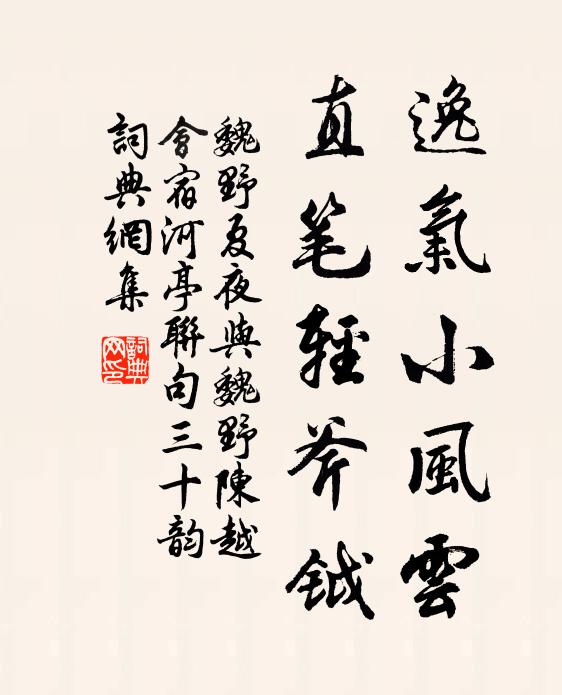 逸氣小風雲
直笔輕斧鉞
魏野夏夜與魏野陳越
會宿河亭聯句三十韵
詞典網集
詞典
网印